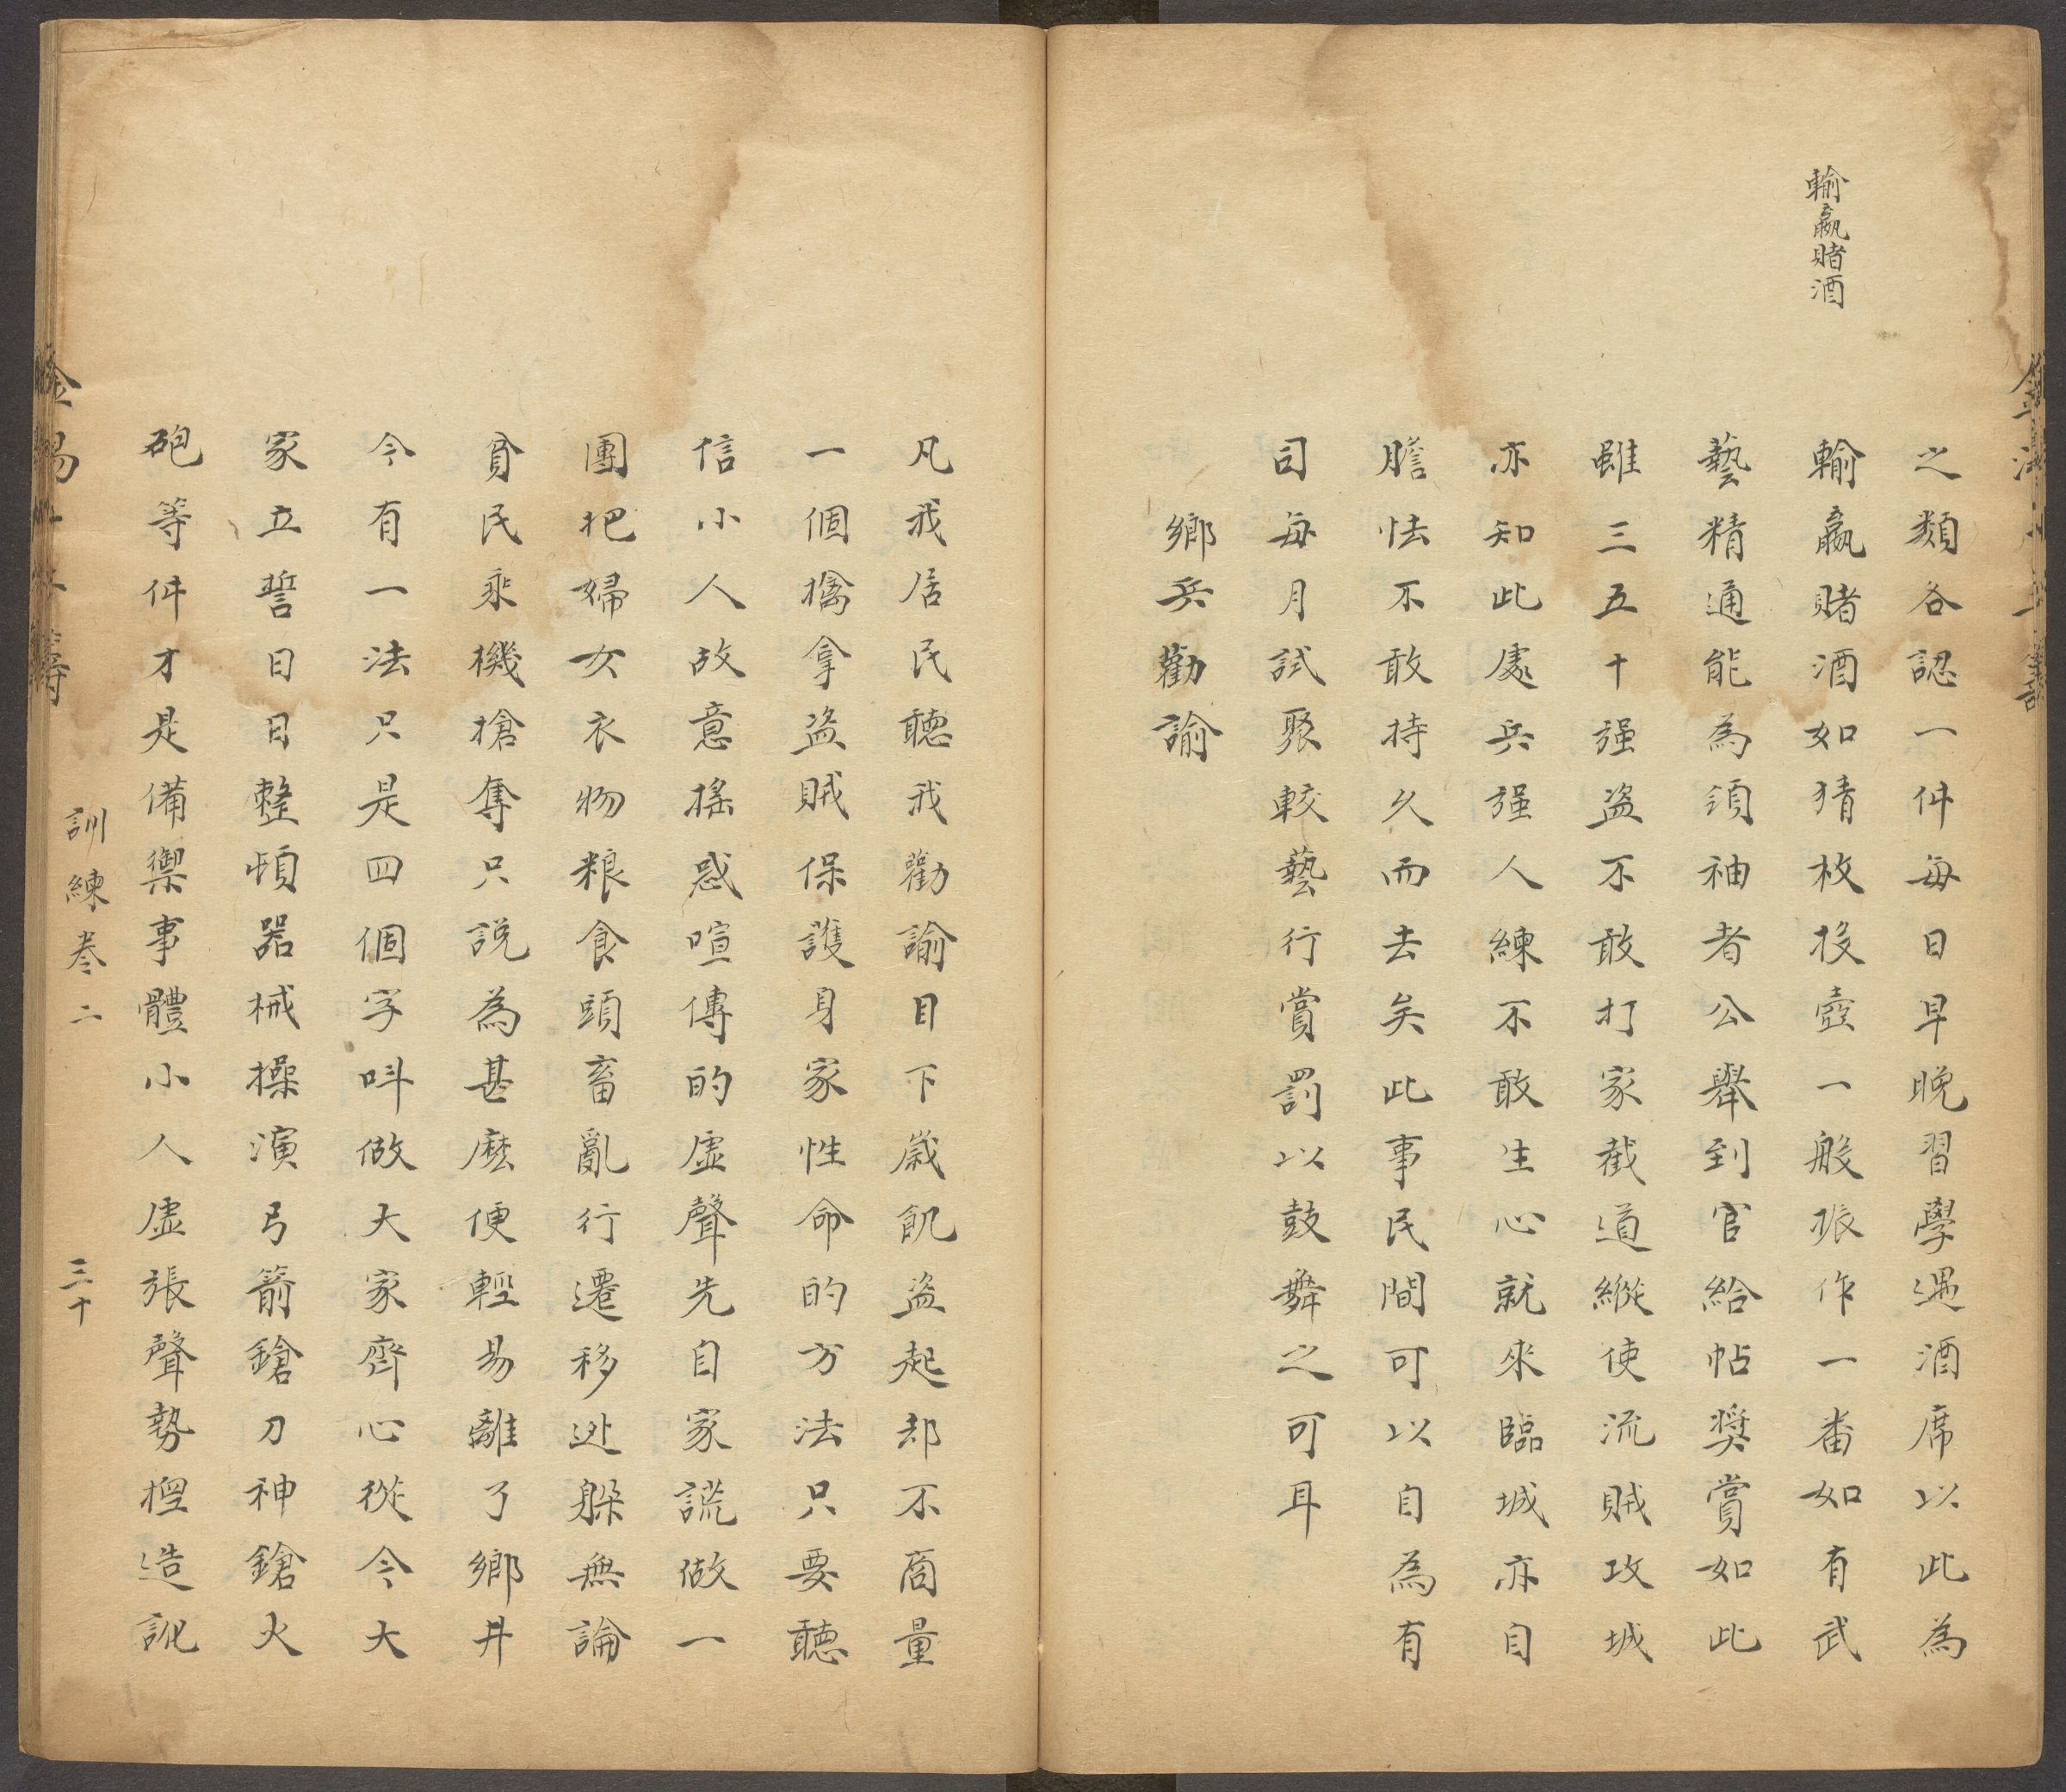 輸贏賭酒
之類各認一件每日早晚習學遇酒席以此為
輸贏賭酒如猜枚投壺一般振作一番如有武
藝精通能為須袖者公舉到官給帖奬賞如此
雖三五十强盗不敢打家截道縱使流賊攻城
亦知此處兵强人練不敢生心就來臨城亦自
膽怯不敢持久而去矣此事民間可以自為有
司每月試聚較藝行賞罰以鼓舞之可耳
鄉兵勸諭
凡我居民聽我勸諭目下歲飢盗起却不商量
一個擒拿盗賊保護身家性命的方法只要聽
信小人故意搖惑喧傳的虛聲先自家謊做一
團把婦女衣物粮食頭畜亂行遷移迯躲無論
貧民乘機搶奪只說為甚麽便輕易離了鄉井
今有一法只是四個字呌做大家齊心從今大
家立誓日日整頓器械操演弓箭鎗刀神鎗火
砲等件才是備禦事體小人虛張聲勢揑造訛
訓練卷二
三十